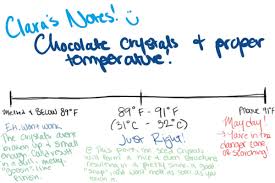 Clara's Notes! :)
Chocolate crystals & proper
temperature!
Melted & BELOW 89°F
Eh.. Won't work
The crystals aren't
broken up &
small enough. Could result
in a dull, melty,
"goopy" like
finish
89°F - 91°F
(31°C - 32°C)
Just Right!
@ this point, the seed crystals
will form a nice & even structure
resulting in a pretty shine, a good
"snap", and won't melt as soon as you
Above 91°F
May day!
You're in the
danger zone
of scorching!